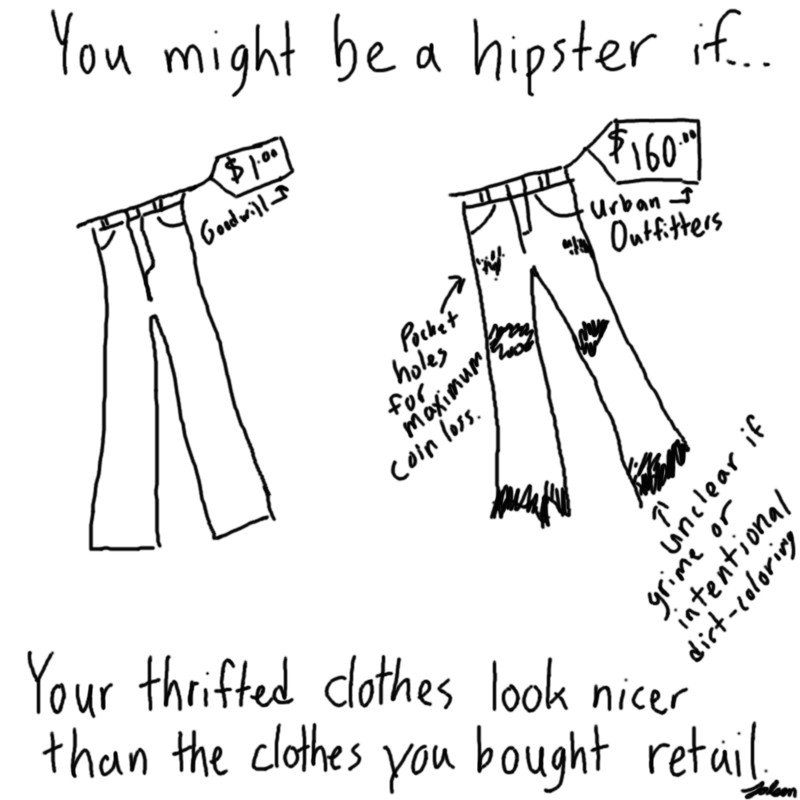 You might be a hipster if...
$1.00
Goodwill
$160.00
Urban
Outfitters
Pocket
holes
for
maximum
coin loss.
unclear if
grime or
intentional
dirt-coloring
Your thrifted clothes look nicer
than the clothes you bought retail.